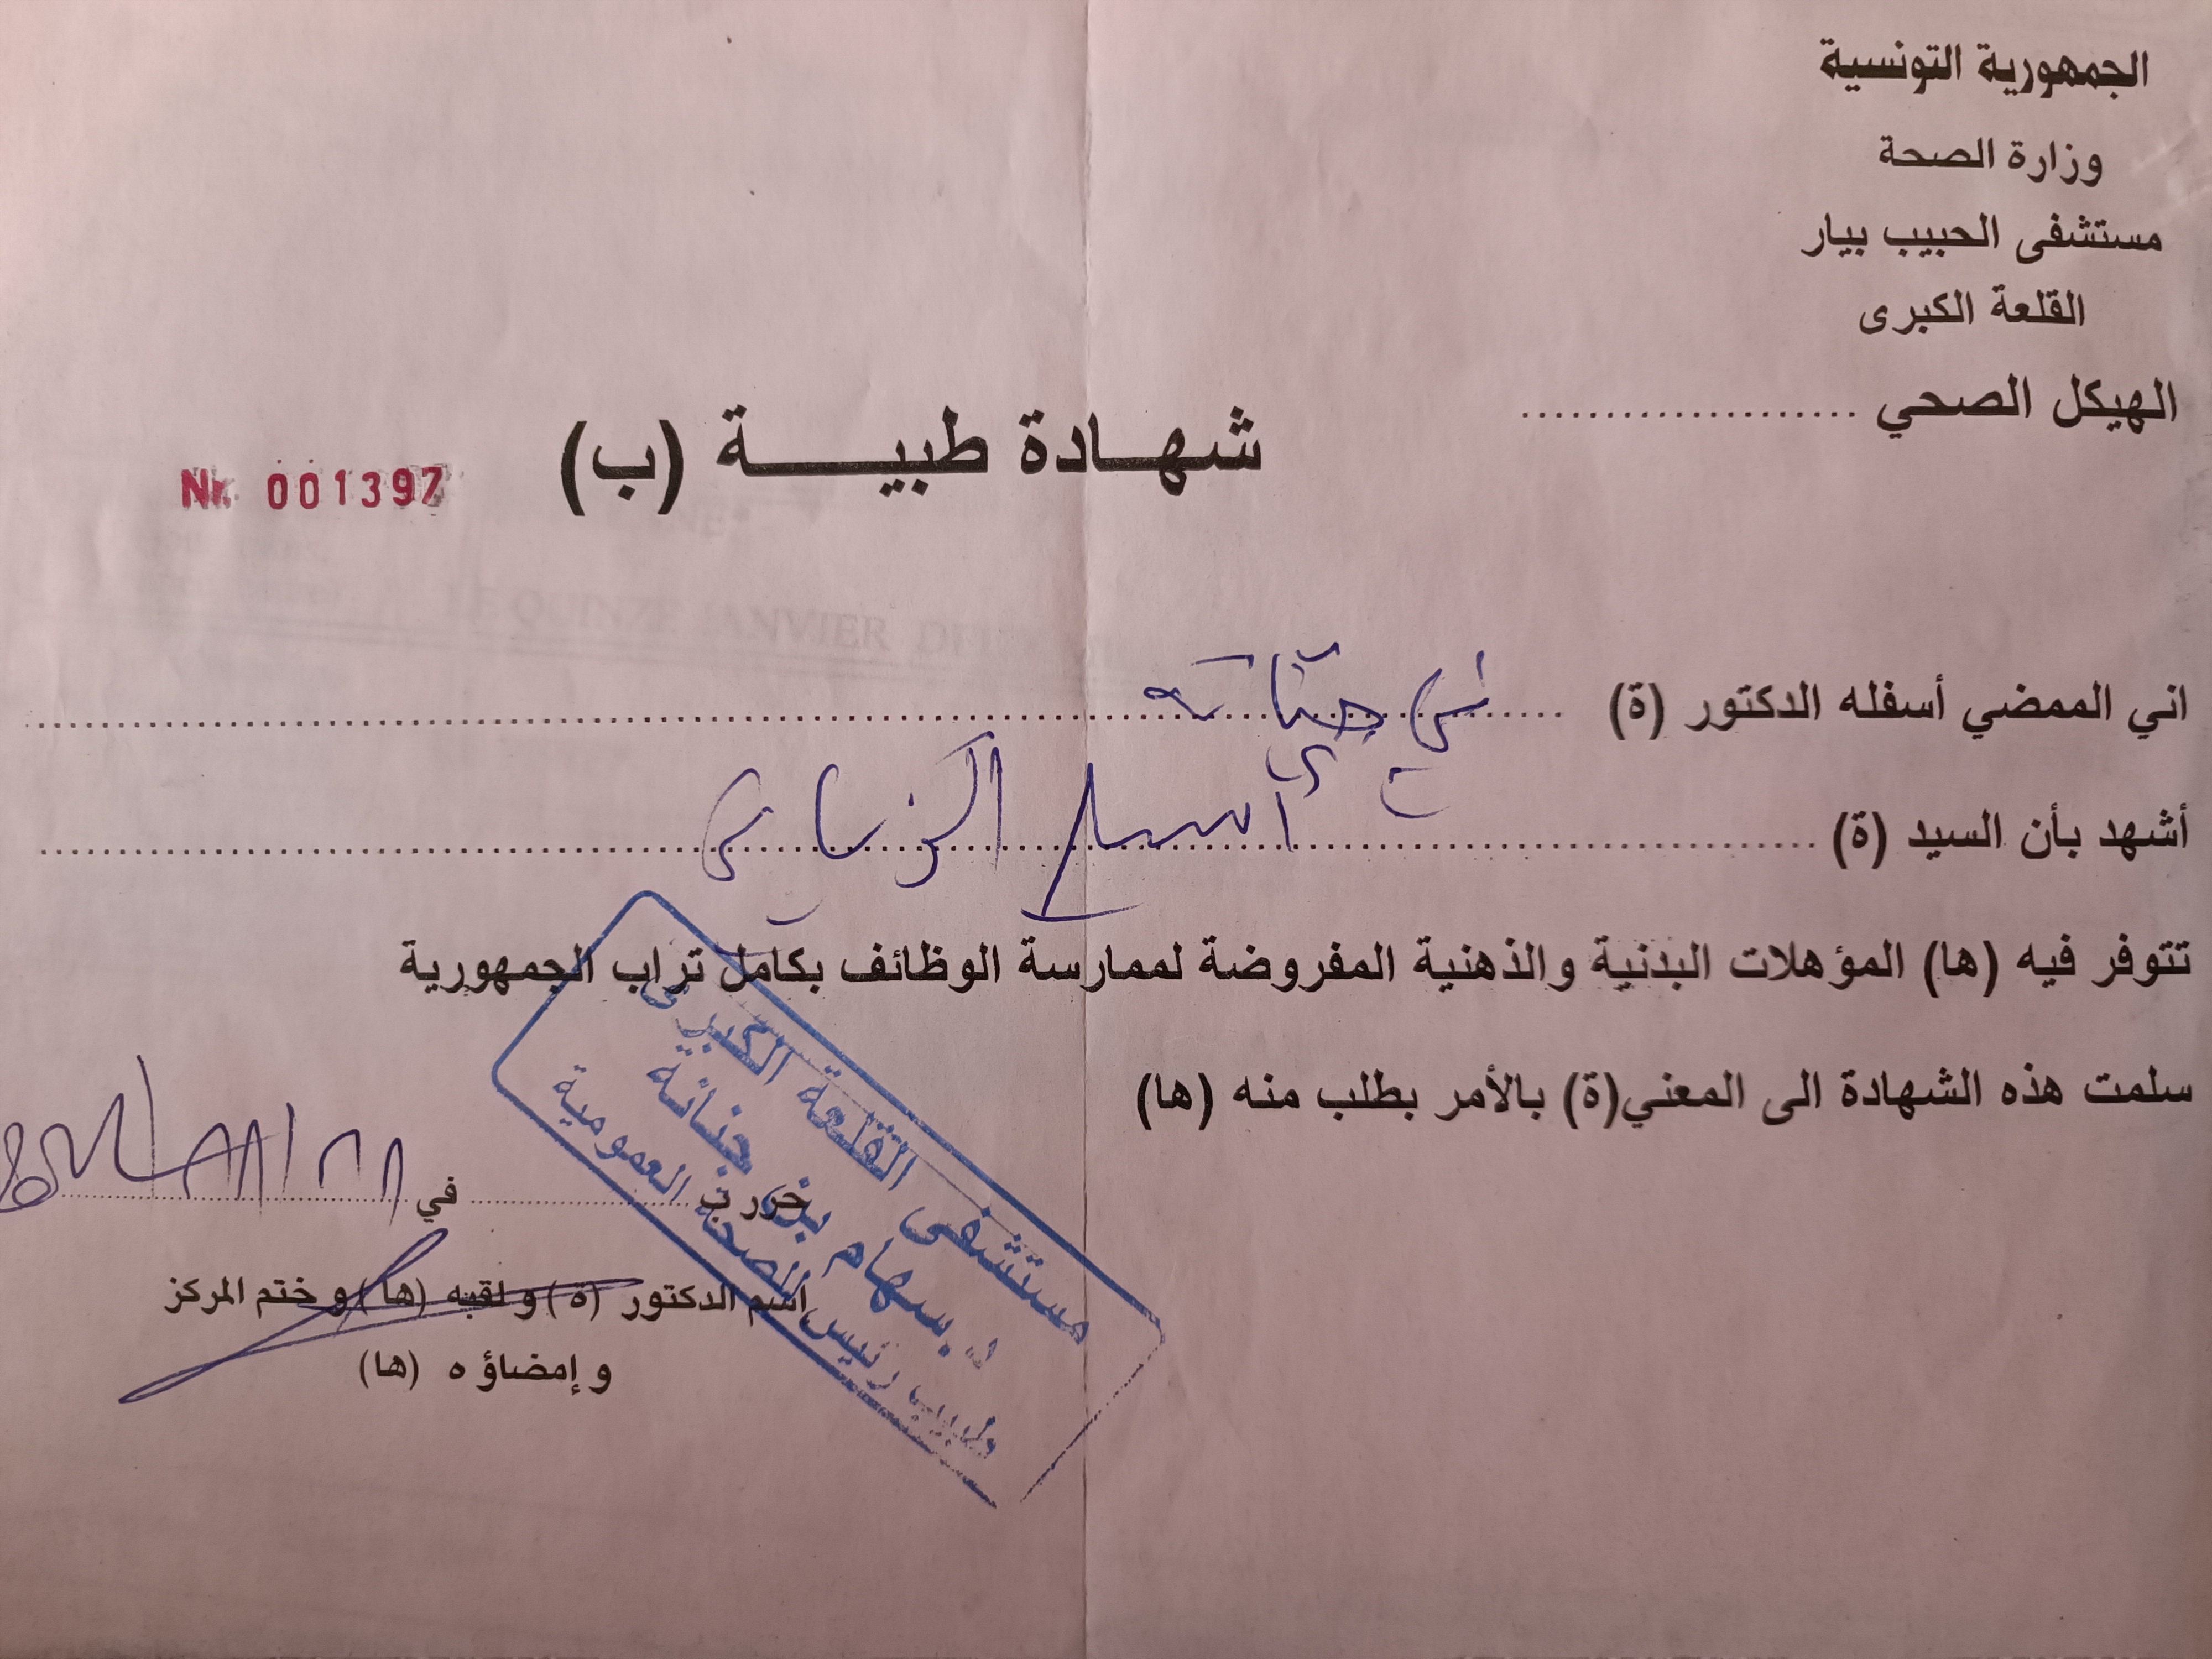 الجمهورية التونسية
وزارة الصحة
مستشفى الحبيب بيار
القلعة الكبرى
الهيكل الصحي ....................
شهادة طبية (ب)
Nr. 001397
LE QUINZE JANVIER
اني الممضي أسفله الدكتور (ة) بن جنانة
أشهد بأن السيد (ة)
تتوفر فيه (ها) المؤهلات البدنية والذهنية المفروضة لممارسة الوظائف بكامل تراب الجمهورية
سلمت هذه الشهادة الى المعني(ة) بالأمر بطلب منه (ها)
حرر ب .................... في
اسم الدكتور (ة) و لقبه (ها) و ختم المركز
و إمضاؤه (ها)
مستشفى القلعة الكبرى
د. سهام بن جنانة
طبيب رئيس للصحة العمومية